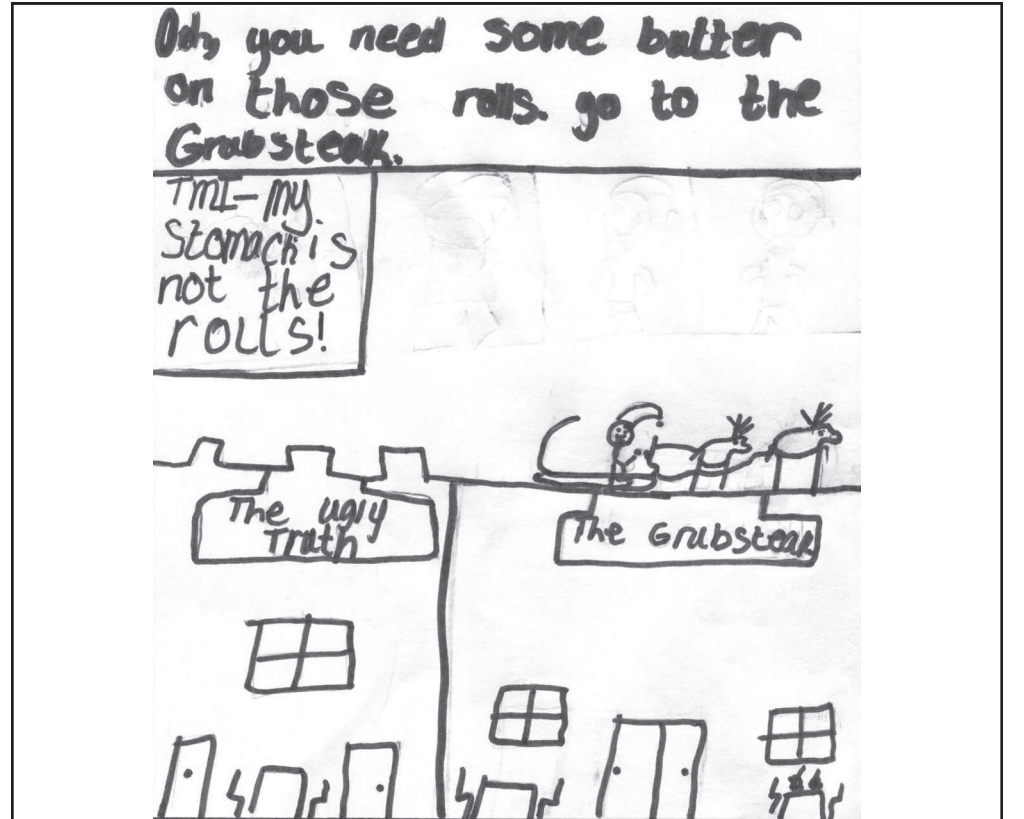 Ooh, you need some butter
on those rolls. go to the
Grubsteak.
TMI-my
Stomach is
not the
rolls!
The ugly
Truth
The Grubsteak